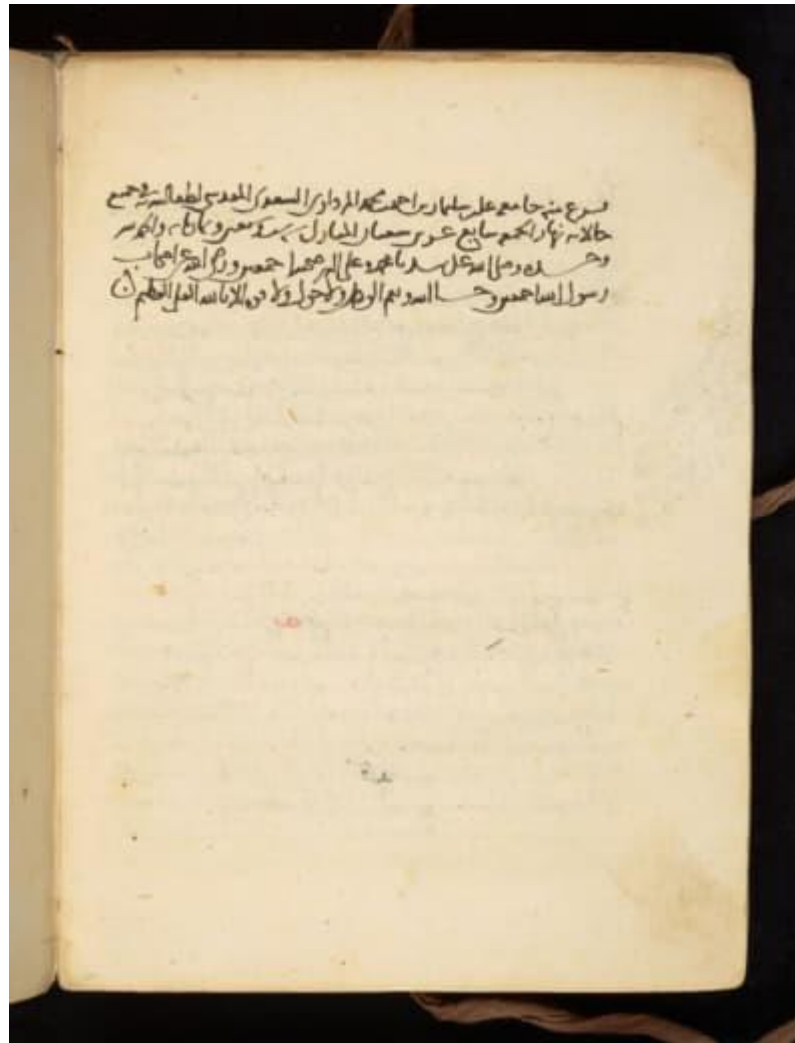 فرغ منه جامعه علي بن سليمان بن احمد بن محمد المرداوي السعدي المقدسي لطف الله به في جميع
حالاته نهار الجمعه سابع عشري شعبان المبارك سنه سبعين وثمانمايه والحمد لله
وحده وصلى الله على سيدنا محمد وعلى اله وصحبه اجمعين ورضي الله عن اصحاب
رسول الله اجمعين وحسبنا الله ونعم الوكيل ولا حول ولا قوه الا بالله العلي العظيم